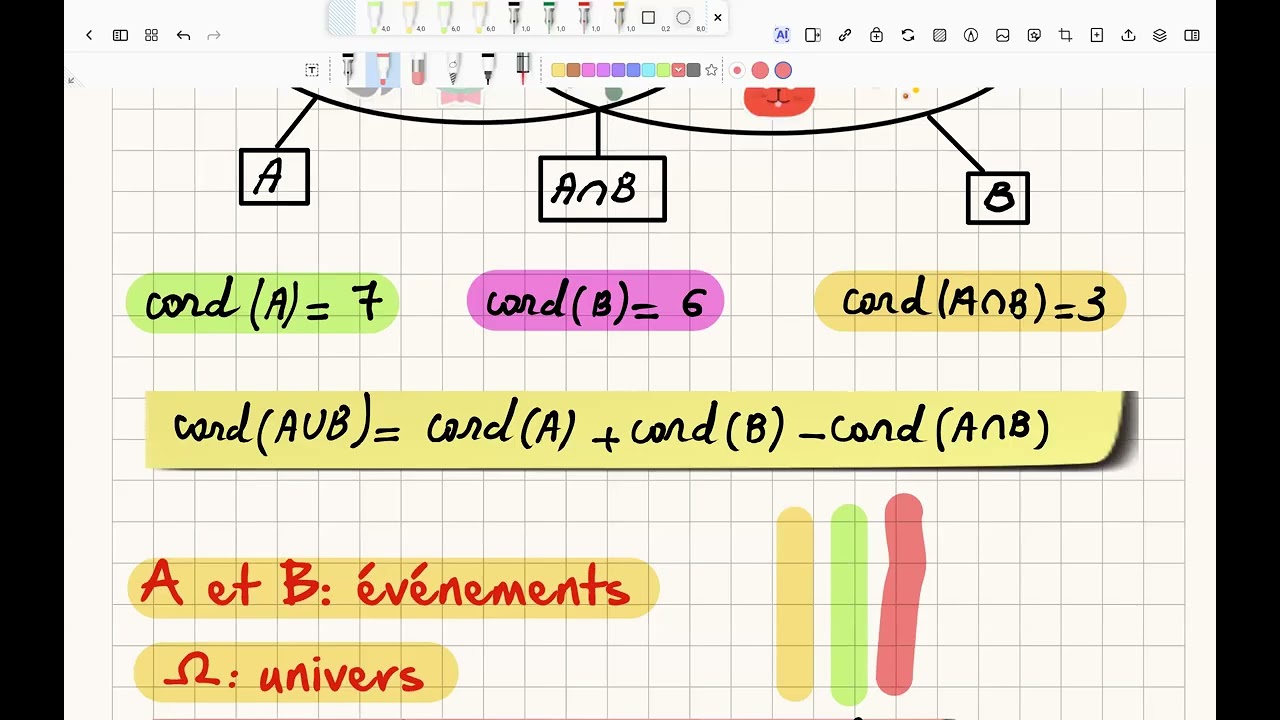 4,0 4,0 6,0 6,0 1,0 1,0 1,0 1,0 0,2 8,0
AI
T
A
A∩B
B
card(A)= 7
card(B)= 6
card(A∩B)=3
card(A∪B)= card(A) + card(B) - card(A∩B)
A et B: événements
Ω: univers